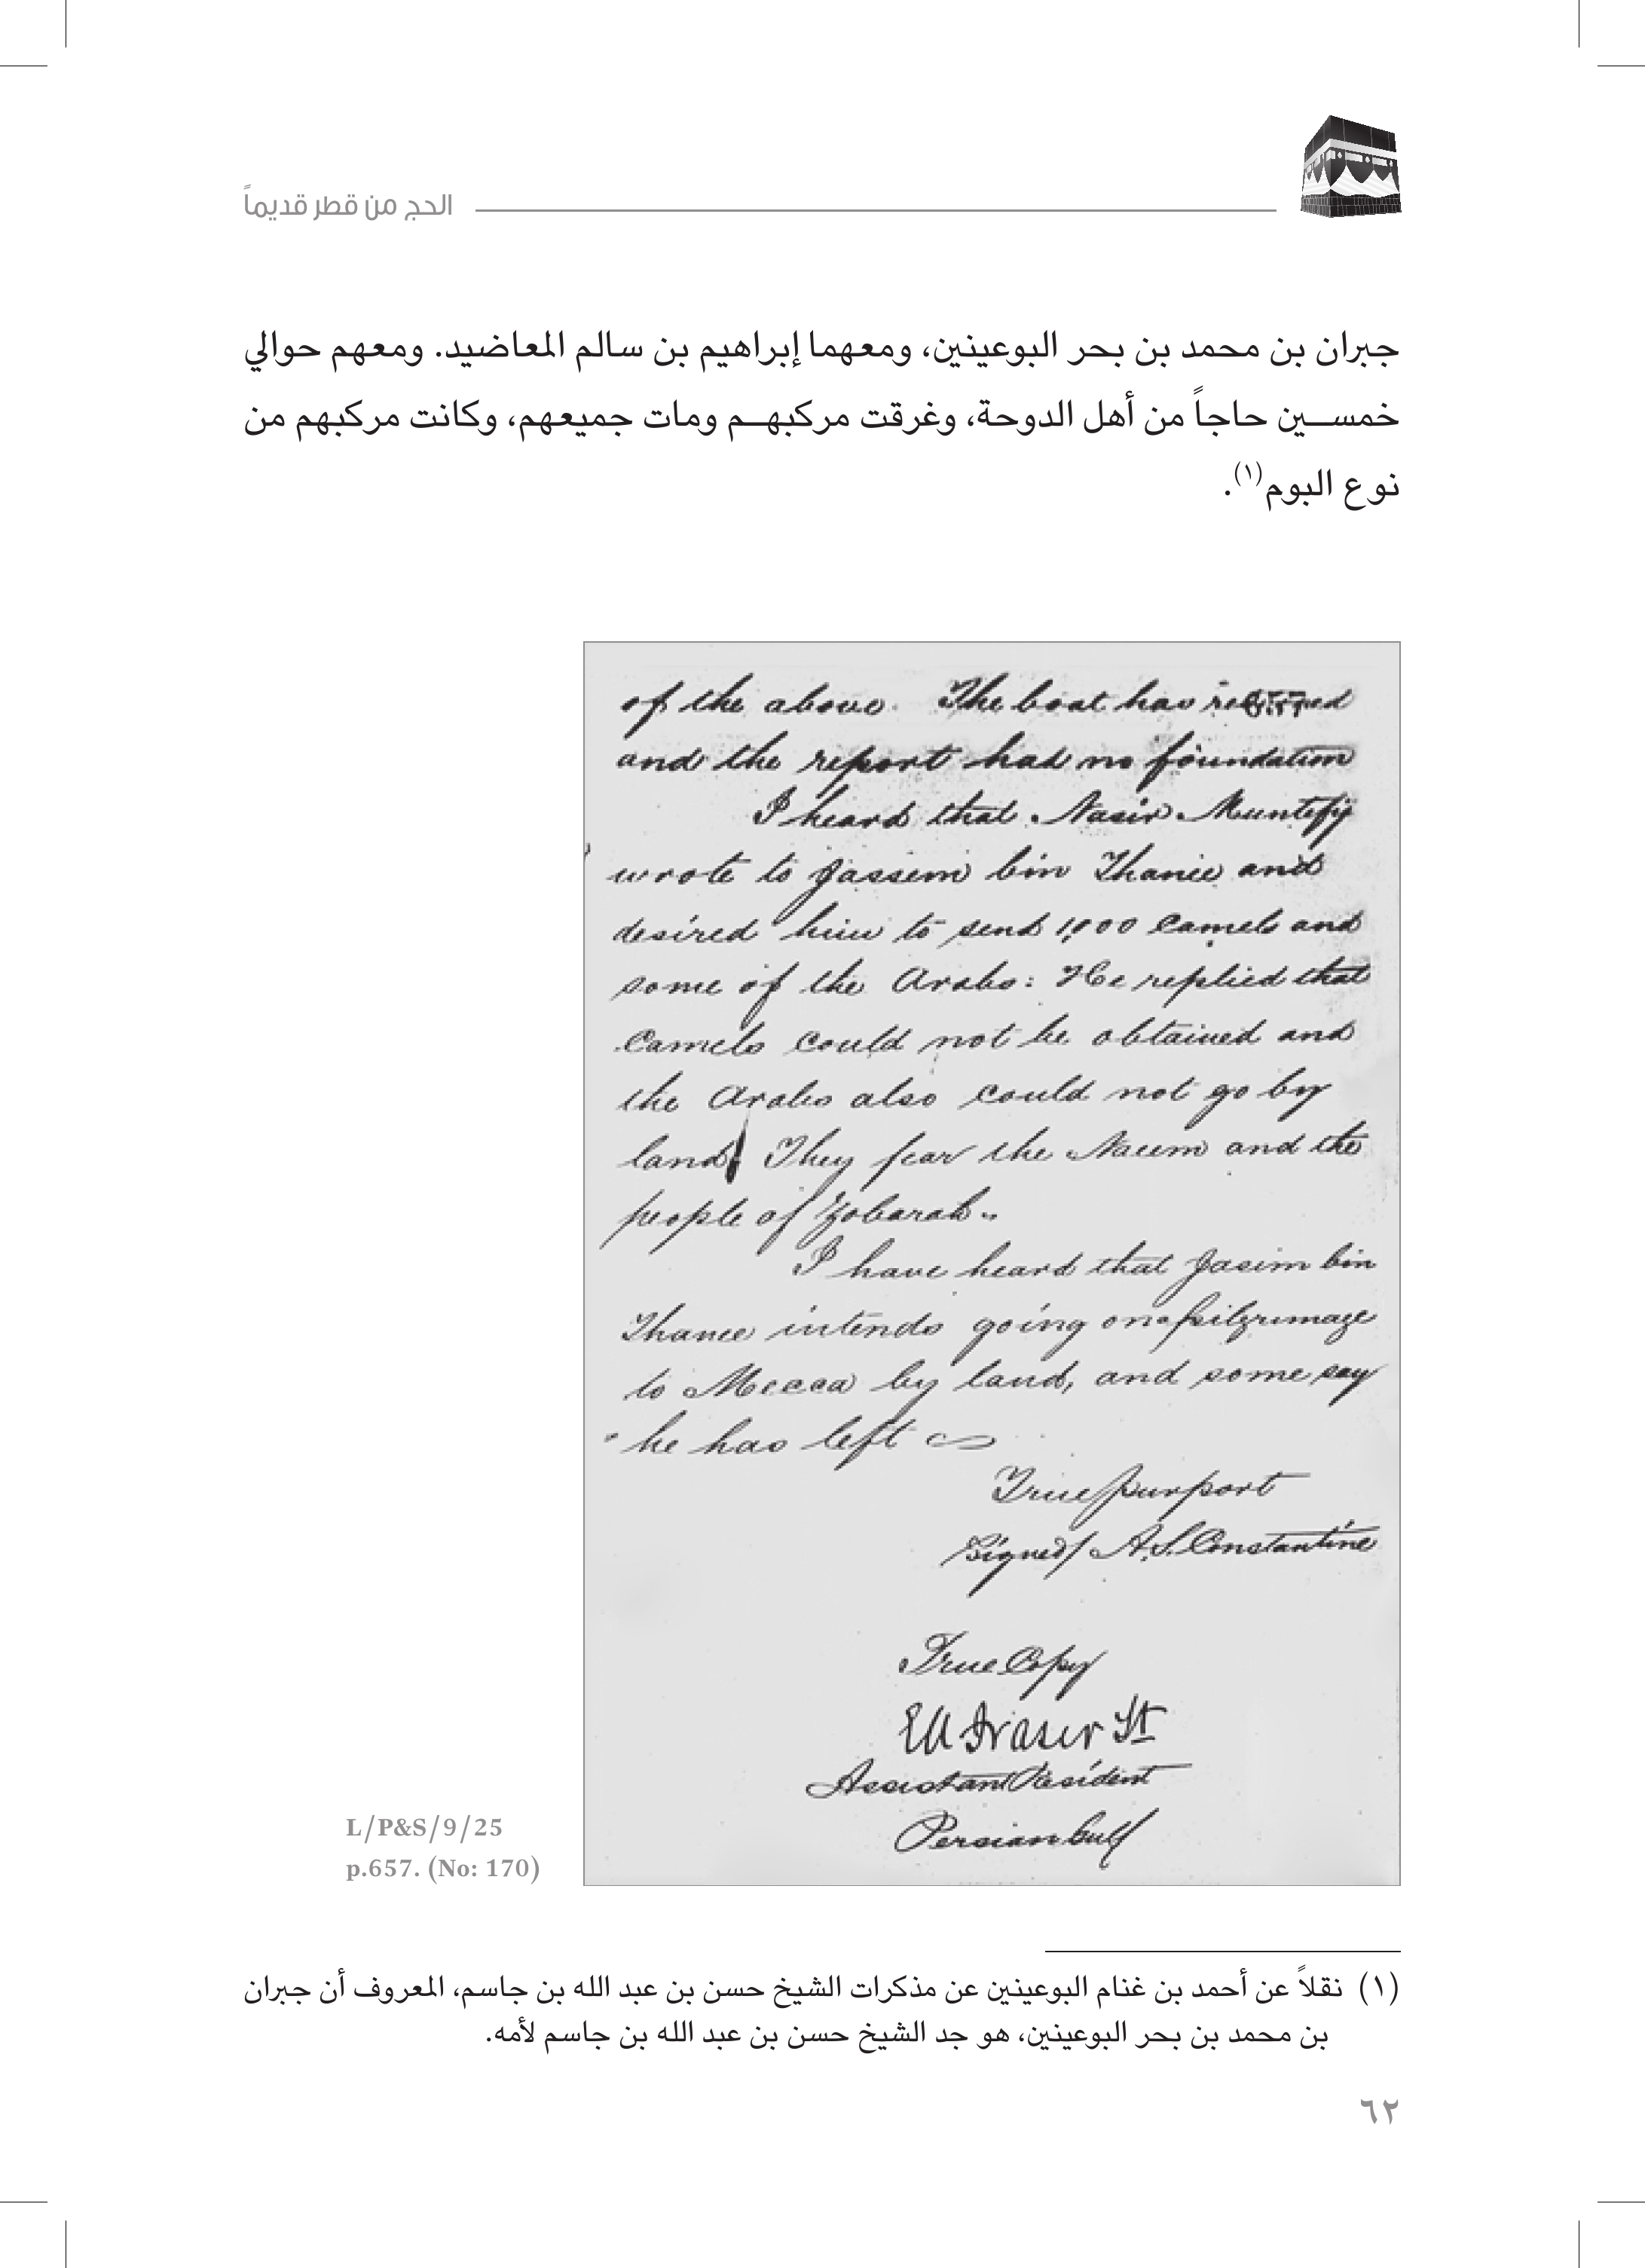 الحج من قطر قديماً
جبران بن محمد بن بحر البوعينين، ومعهما إبراهيم بن سالم المعاضيد. ومعهم حوالي
خمسين حاجاً من أهل الدوحة، وغرقت مركبهم ومات جميعهم، وكانت مركبهم من
نوع البوم(١).
of the above. The boat has
and the report had no foundation
I heard that Nasir Muntefij
wrote to Jassem bin Thanee and
desired him to send 1,000 Camels and
some of the Arabs: He replied that
Camels could not be obtained and
the Arabs also could not go by
land. They fear the Naeem and the
people of Zobarah.
I have heard that Jasim bin
Thanee intends going on a pilgrimage
to Mecca by land, and some say
he has left
True purport
Signed/ A.S. Constantine
True Copy
EA Fraser Lt
Assistant Resident
Persian Gulf
L/P&S/9/25
p.657. (No: 170)
(١) نقلاً عن أحمد بن غنام البوعينين عن مذكرات الشيخ حسن بن عبد الله بن جاسم، المعروف أن جبران
بن محمد بن بحر البوعينين، هو جد الشيخ حسن بن عبد الله بن جاسم لأمه.
٦٢